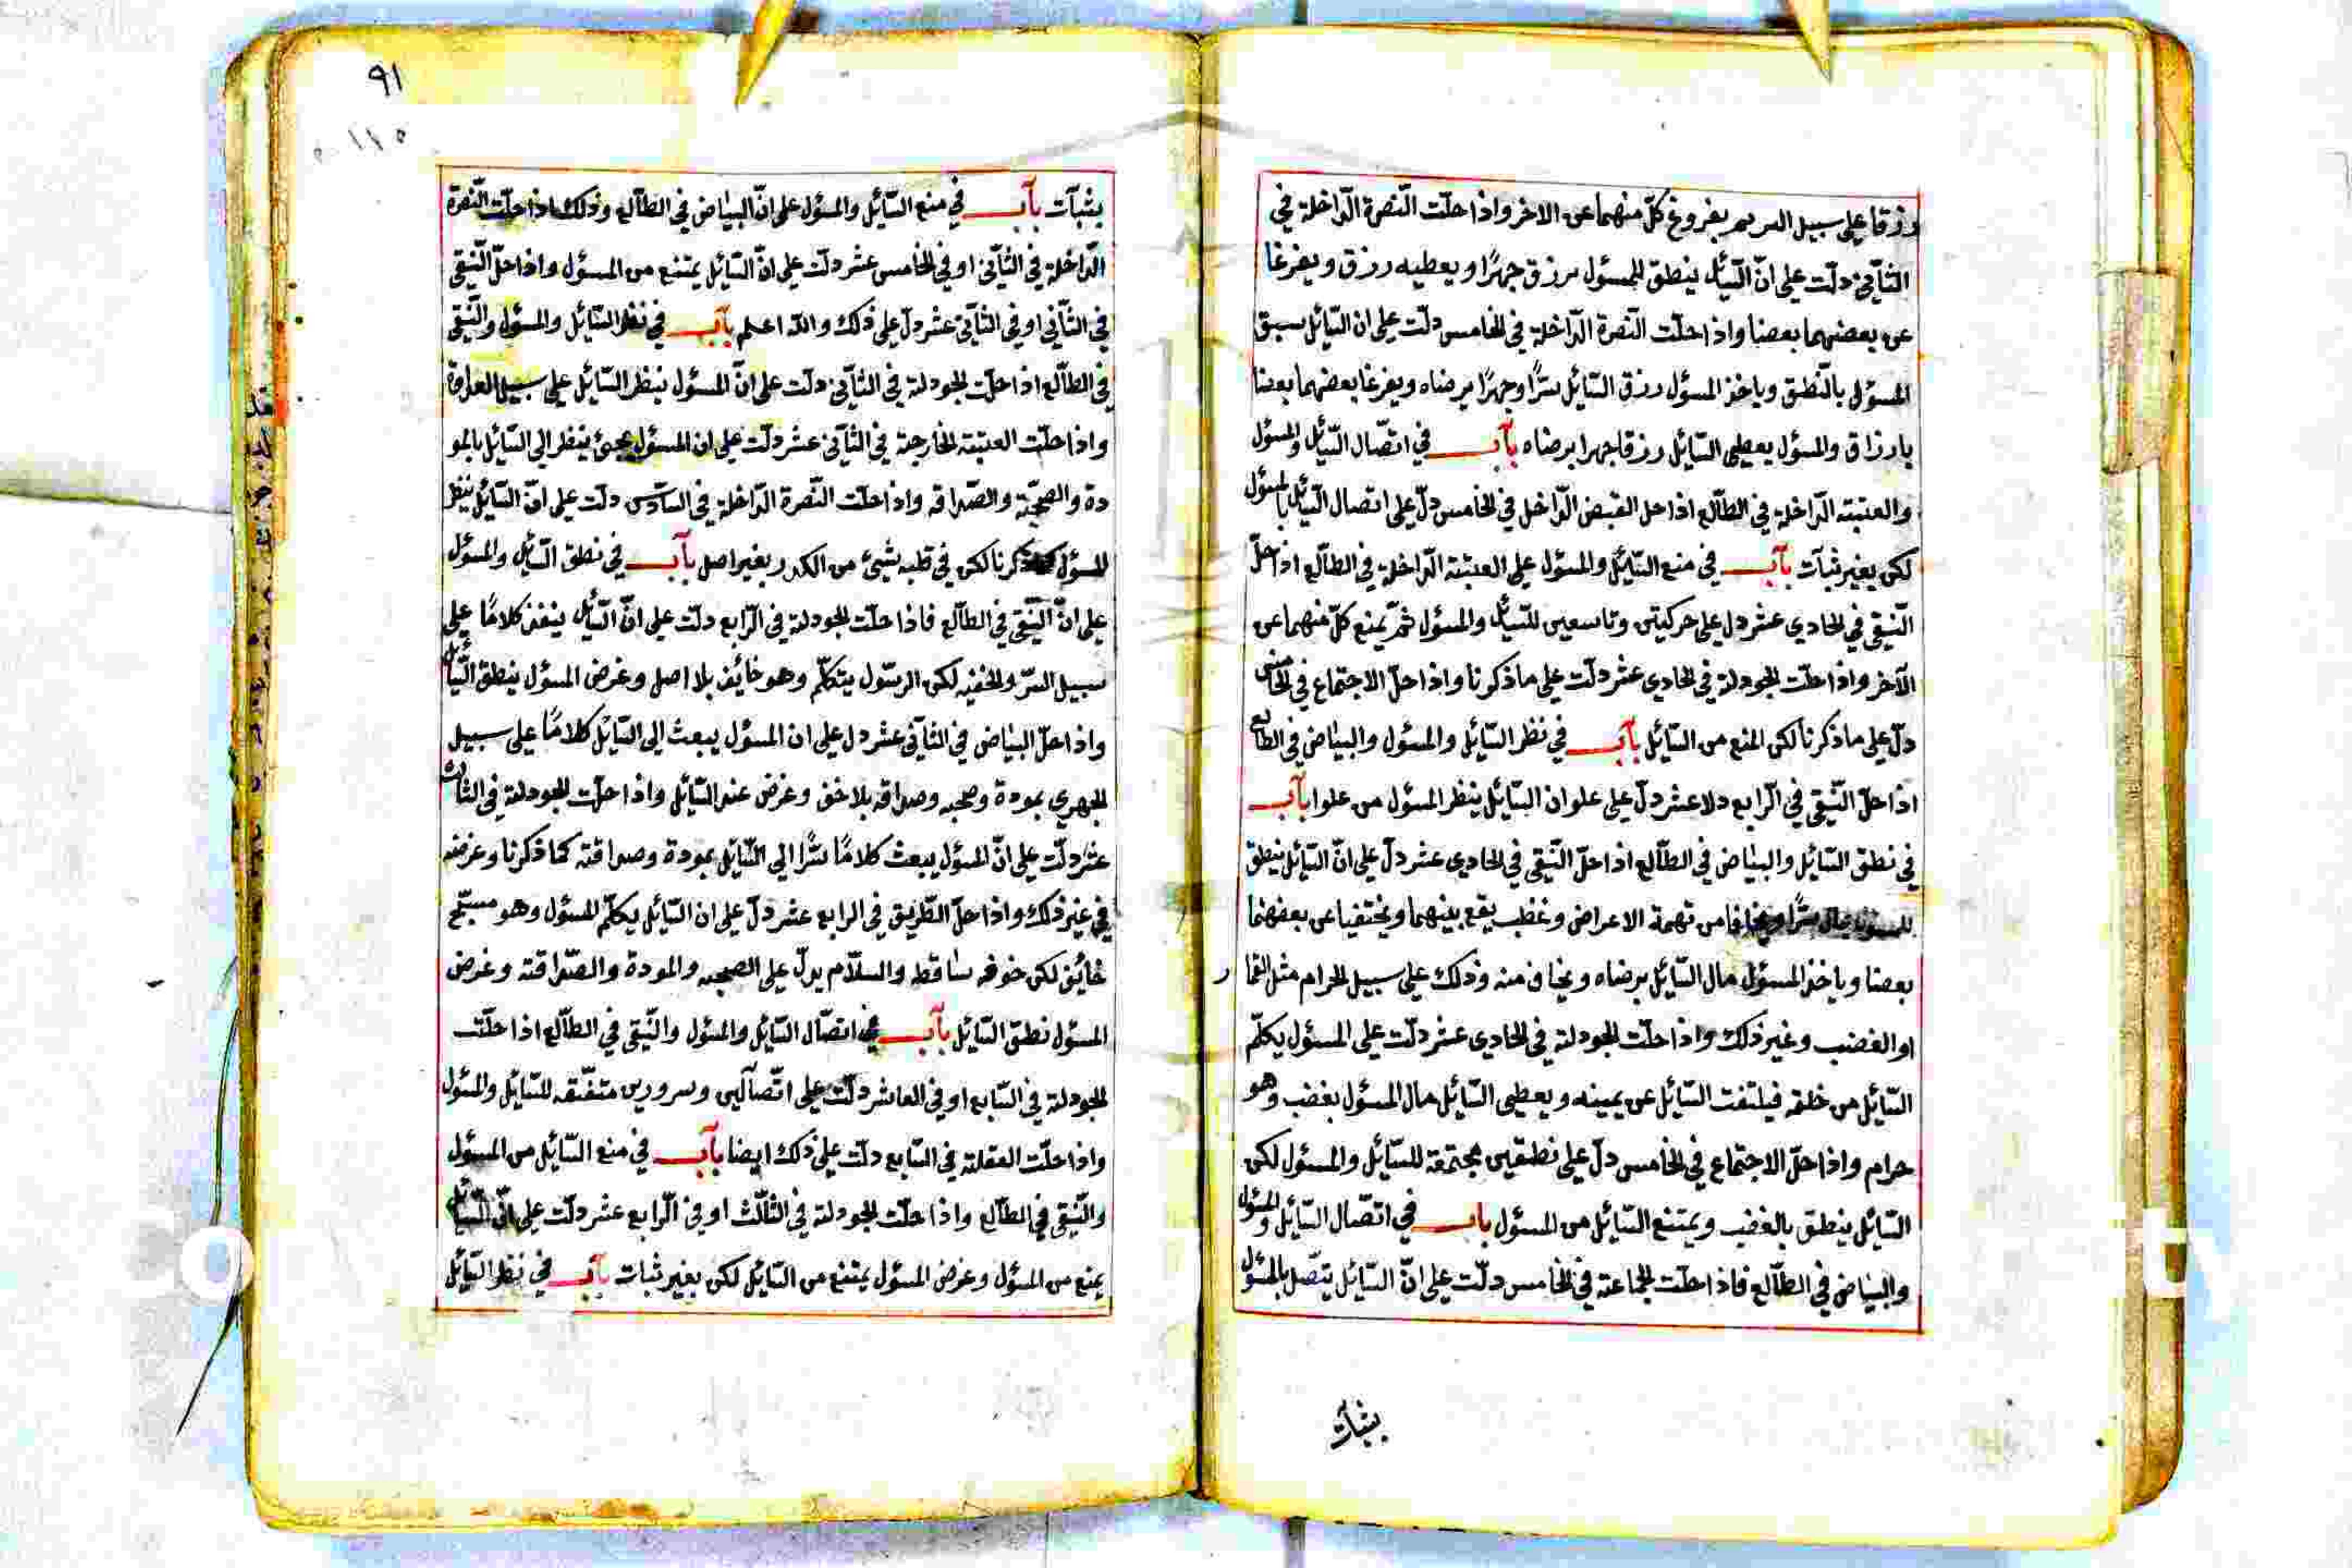 رزقا على سبيل السر ثم يفروغ كلّ منهما عن الاخر واذا حلّت النّصرة الدّاخلة في
الثّاني دلّت على انّ السّائل ينطق للمسئول برزق جهرًا ويعطيه رزق ويفرغا
عن بعضهما بعضا واذا حلّت النّصرة الدّاخلة في الخامس دلّت على ان السّائل سبق
المسؤل بالنّطق وياخذ المسؤل رزق السّائل سرًّا وجهرًا برضاه ويفرغا بعضهما بعضا
بارزاق والمسؤل يعطى السّائل رزقا جهرا برضاه بآب في اتّصال السّائل والمسؤل
والعتبته الدّاخلة في الطّالع اذا حل القبض الدّاخل في الخامس دلّ على اتصال السّائل بالمسؤل
لكن بغير ثبآت بآب في منع السّائل والمسؤل على العتبته الدّاخلة في الطّالع اذا حلّ
النّقى في الحادي عشر دل على حركيتن وتاسعين للسّائل والمسؤل ثمّ يمنع كلّ منهما عن
الآخر واذا حلت الجودلة في الحادى عشر دلّت على ماذكرنا واذا حلّ الاجتماع في الخامس
دلّ على ماذكرنا لكن المنع من السّائل بآب في نظر السّائل والمسؤل والبياض في الطالع
اذا حلّ النّقى في الرّابع دلا عشر دلّ على علوان السّائل ينظر المسؤل من علوا بآب
في نطق السّائل والبياض في الطّالع اذا حلّ النّقى في الحادى عشر دلّ على انّ السّائل ينطق
سرًّا من تهمة الاعراض وغظب يقع بينهما ويختفيا عن بعضهما
بعضا وياخذ المسؤل مال السّائل برضاه ويخاف منه وذلك على سبيل الحرام مثل القمار
او الغضب وغير ذلك واذا حلت الجودلة في الحادى عشر دلّت على المسئول يكلّم
السّائل من خلفه فيلتفت السّائل عن يمينه ويعطى السّائل مال المسؤل بغضب وهو
حرام واذا حلّ الاجتماع في الخامس دلّ على نطقين مجتمعة للسّائل والمسئول لكن
السّائل ينطق بالغضب ويمتنع السّائل من المسؤل باب في اتّصال السّائل والمسؤل
والبياض في الطّالع فاذا حلّت الجماعة في الخامس دلّت على انّ السّائل يتّصل بالمسؤل
بثبات
٩١
بثبآت بآب في منع السّائل والمسؤل على انّ البياض في الطّالع وذلك اذا حلّت النّصرة
الدّاخلة في الثّاني او في الخامس عشر دلّت على انّ السّائل يمتنع من المسؤل واذا حلّ النّقى
في الثّاني او في الثّاني عشر دلّ على ذلك واللّه اعلم بآب في نظر السّائل والمسؤل والنّقى
في الطّالع اذا حلّت الجودلة في الثّاني دلّت على انّ المسؤل ينظر السّائل على سبيل العداوة
واذا حلّت العتبته الخارجة في الثّاني عشر دلّت على ان المسؤل يجئ ينظر الى السّائل بالمو
دة والصحبّة والصّداقه واذا حلّت النّصرة الدّاخلة في السّادس دلّت على انّ السّائل ينظر
للمسؤل كما ذكرنا لكن في قلبه شيئ من الكدر بغير اصل بآب في نطق السّائل والمسؤل
على انّ النّقى في الطّالع فاذا حلّت الجودلة في الرّابع دلّت على انّ السّائل ينفذ كلامًا على
سبيل السّرّ والخفيه لكن الرسّول يتكلّم وهو خائف بلا اصل وغرض المسؤل ينطق السّائل
واذا حلّ البياض في الثاني عشر دل على ان المسؤل يبعث الى السّائل كلامًا على سبيل
الجهري بمودة وصحبه وصداقه بلا خف وغرض عند السّائل واذا حلّت الجودلة في الثالث
عشر دلّت على انّ المسؤل يبعث كلامًا سّرًا الى السّائل بمودة وصداقته كما ذكرنا وغرضه
في غير ذلك واذا حلّ الطّريق في الرابع عشر دلّ على ان السّائل يكلّم المسؤل وهو
خائف لكن خوفه ساقط والسلّام يدلّ على الصحبه والمودة والصّداقته وغرض
المسؤل نطق السّائل بآب في اتصّال السّائل والمسؤل والنّقى في الطّالع اذا حلّت
الجودلة في السّابع او في العاشر دلّت على اتّصآلين وسرورين متفّقه للسّائل والمسؤل
واذا حلّت العقلة في السّابع دلّت على ذلك ايضا بآب في منع السّائل من المسؤل
والنّقى في الطّالع واذا حلّت الجودلة في الثّالث او في الرّابع عشر دلّت على انّ السّائل
يمنع من المسؤل وغرض المسؤل يمتنع من السّائل لكن بغير ثبات بآب في نظر السّائل